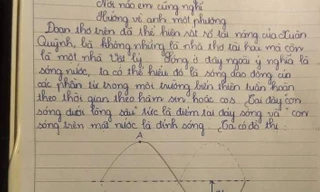 Nơi nào em cũng nghĩ
Hướng về anh một phương
Đoạn thơ trên đã thể hiện sắc tài năng của Xuân
Quỳnh, bà không những là nhà thơ tài hoa mà còn
là một nhà Vật lý. Sóng ở đây ngoài ý nghĩa là
sóng nước, ta có thể hiểu đó là sóng dao động của
các phần tử trong môi trường biến thiên tuần hoàn
theo thời gian theo hàm sin hoặc cos. Tại đây "con
sóng dưới lòng sâu" tức là điểm tại đáy sóng và "con
sóng trên mặt nước" là đỉnh sóng. Ta có đồ thị
A